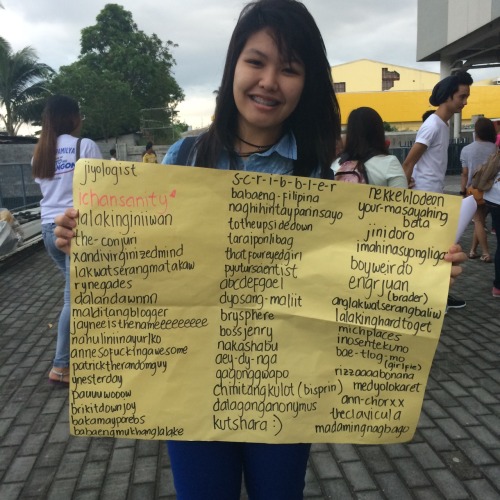 jiyologist
ichansanity
lalakinginiiwan
the-conjuri
xandivirginizedmind
lakwatserangmatakaw
rynegades
dalandawnnn
malditangblogger
jayneeisthenameeeeeeeee
nahulininayurlko
annesofuckingawesome
patricktherandomguy
ynesterday
pauuuwooow
brikitdownjoy
batamayporebs
babaengmukhanglalake
s-c-r-i-b-b-l-e-r
babaeng-filipina
naghihintayparinsayo
totheupsidedown
taraiponlibag
thatfoureyedgirl
pyutursaentist
abcdefgael
dyosang-maliit
brysphere
bossjenry
nakashabu
aey-dy-nga
gagongwapo
chimitangkulot (bisprin)
dalaganganonymus
kutshara :)
nekkehlodeon
your-masayahing
bata
jinidoro
imahinasyongliga
boyweirdo
engrjuan
(brader)
anglakwatserangbaliw
lalakinghardtoget
michplaces
inosentekuno
bae-tlog-mo
(girlfie)
rizzaaaabonana
medyolokaret
ann-chorxx
theclavicula
madamingnagbago